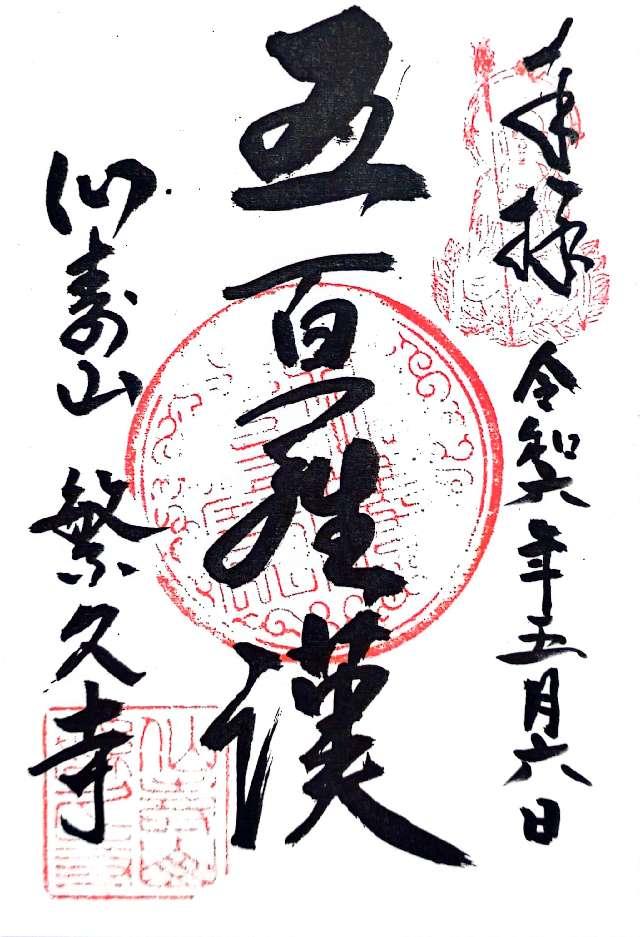 奉拝
令和六年五月六日
五百羅漢
仙寿山 繁久寺